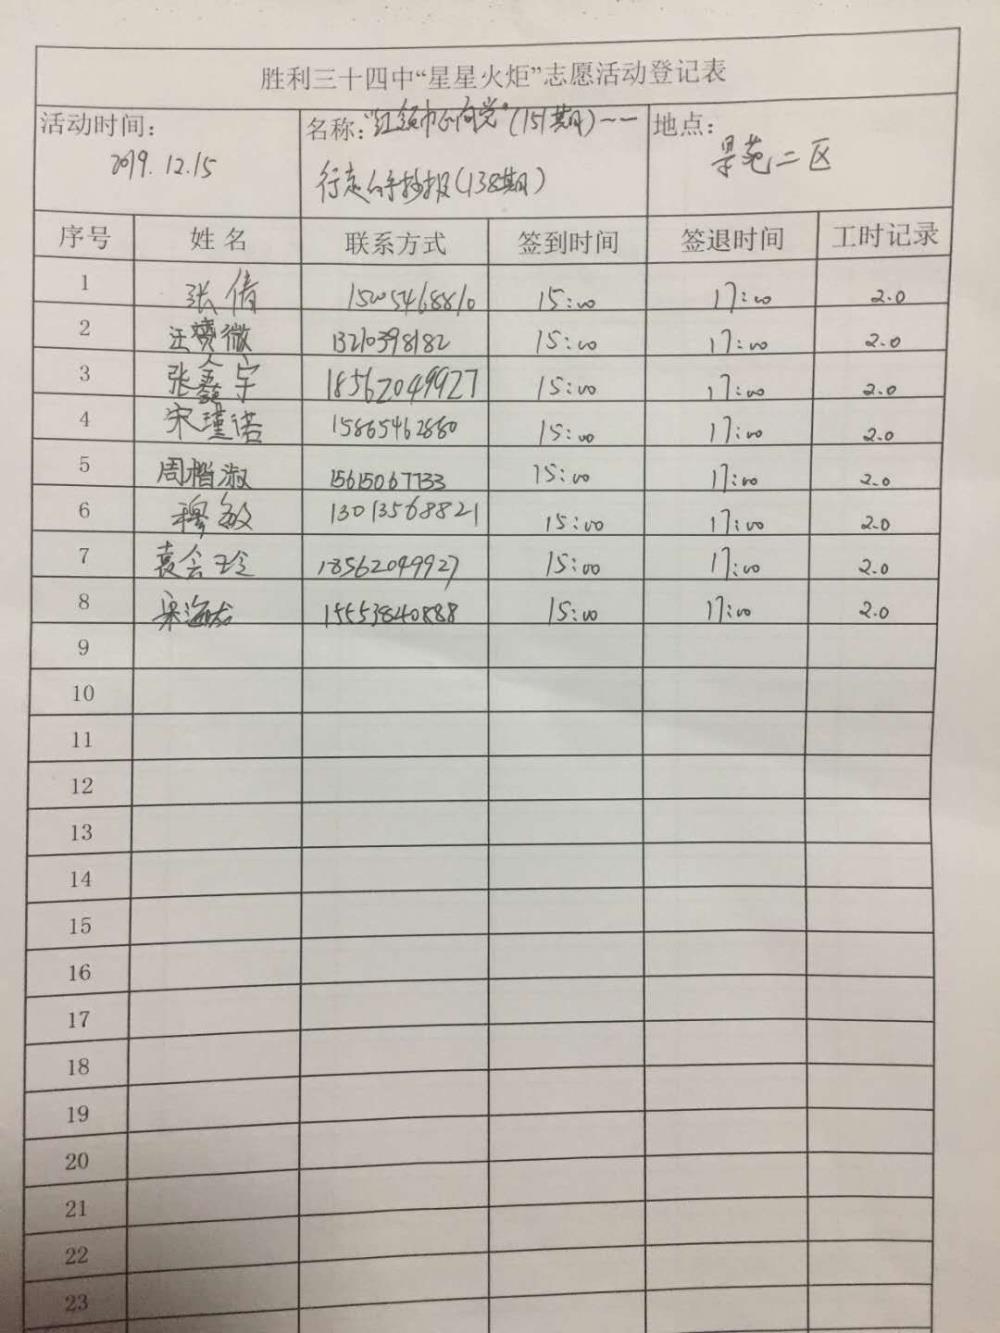 胜利三十四中“星星火炬”志愿活动登记表
活动时间: 名称:“红领巾心向党”(151期)—— 地点:
2019.12.15 行走的手抄报(138期) 景苑二区
序号 姓名 联系方式 签到时间 签退时间 工时记录
1 张倩 15005468810 15:00 17:00 2.0
2 汪赟微 13210398182 15:00 17:00 2.0
3 张鑫宇 18562049927 15:00 17:00 2.0
4 宋瑾诺 15865462880 15:00 17:00 2.0
5 周楷淑 15615067733 15:00 17:00 2.0
6 穆敏 13013568821 15:00 17:00 2.0
7 袁会玲 18562049927 15:00 17:00 2.0
8 宋海龙 15553840888 15:00 17:00 2.0
9
10
11
12
13
14
15
16
17
18
19
20
21
22
23